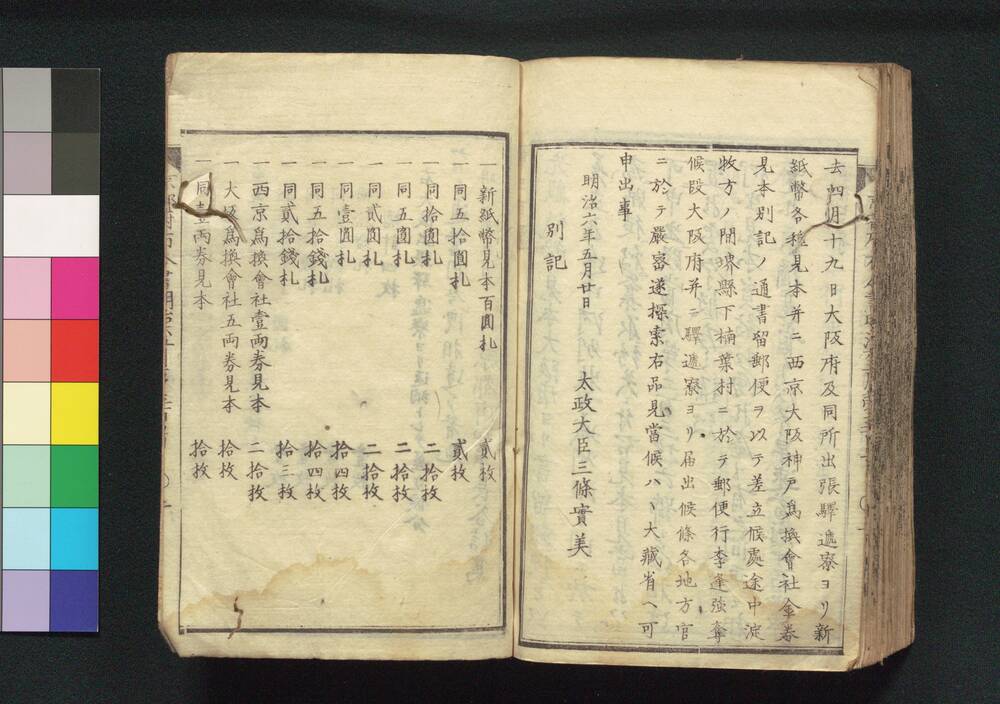 去四月十九日大阪府及同所出張驛遞寮ヨリ新
紙幣各種見本并ニ西京大阪神戸爲換會社金券
見本別記ノ通書留郵便ヲ以テ差立候處途中淀
牧方ノ間堺縣下楠葉村ニ於テ郵便行李逢強奪
候段大阪府并ニ驛遞寮ヨリ届出候條各地方官
ニ於テ嚴密遂探索右品見當候ハヽ大藏省ヘ可
申出事
明治六年五月廿日 太政大臣三條實美
別記
一 新紙幣見本百圓札 貳枚
一 同五拾圓札 貳枚
一 同拾圓札 二拾枚
一 同五圓札 二拾枚
一 同貳圓札 二拾枚
一 同壹圓札 拾四枚
一 同五拾錢札 拾四枚
一 同貳拾錢札 拾三枚
一 西京爲換會社壹兩券見本 二拾枚
一 大坂爲換會社五兩券見本 拾枚
一 同壹兩券見本 拾枚